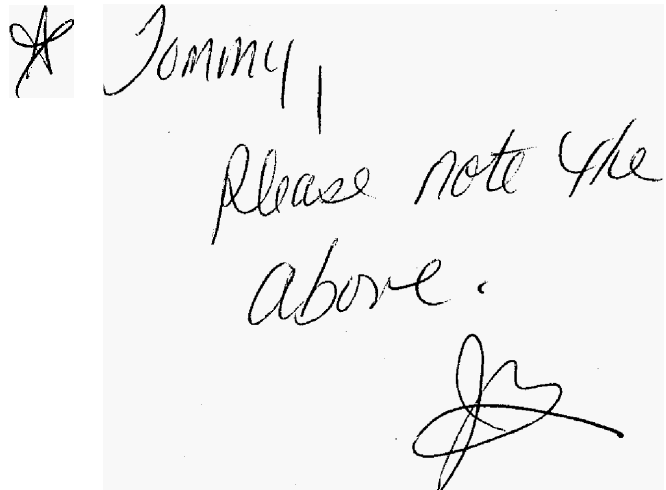 Tommy,
Please note the
above.